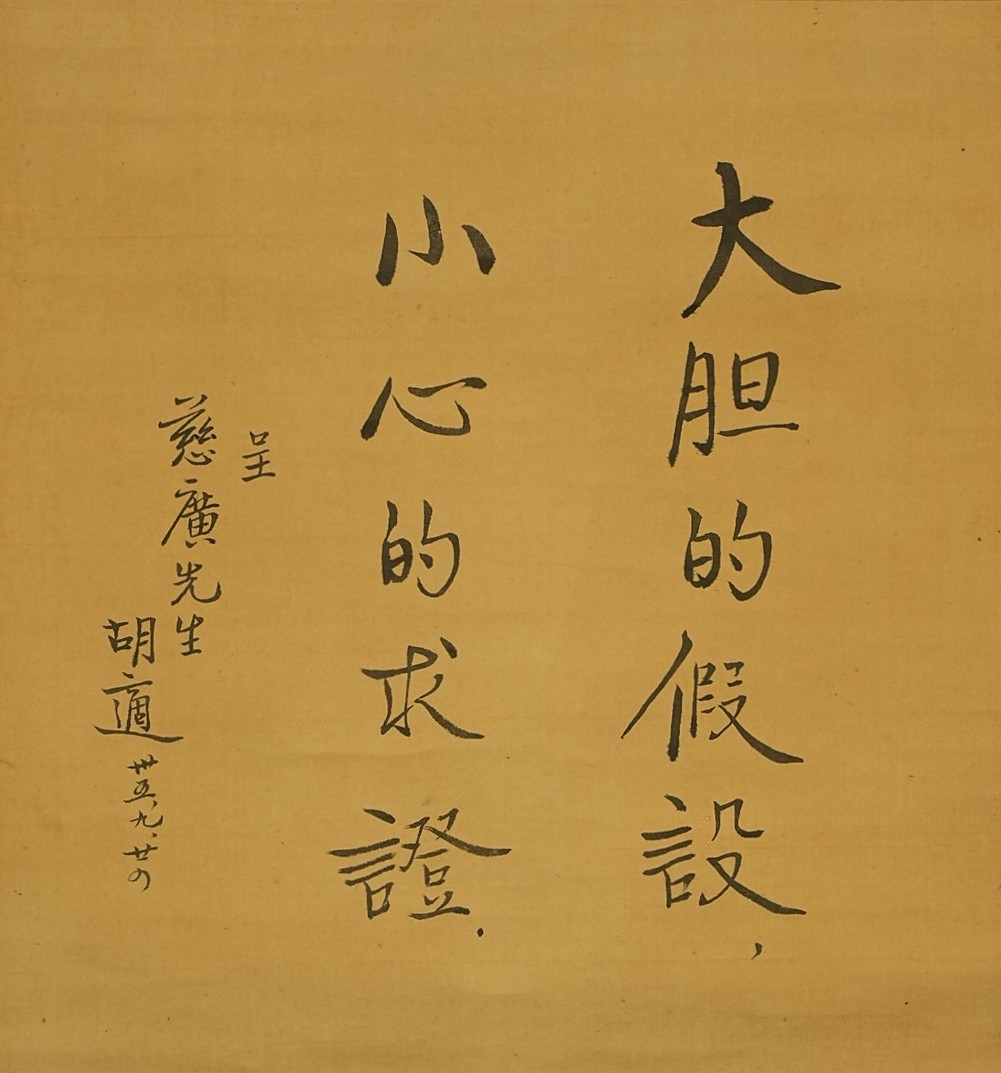 大胆的假設，
小心的求證．
呈
慈廣先生
胡適 卅五、九、廿四